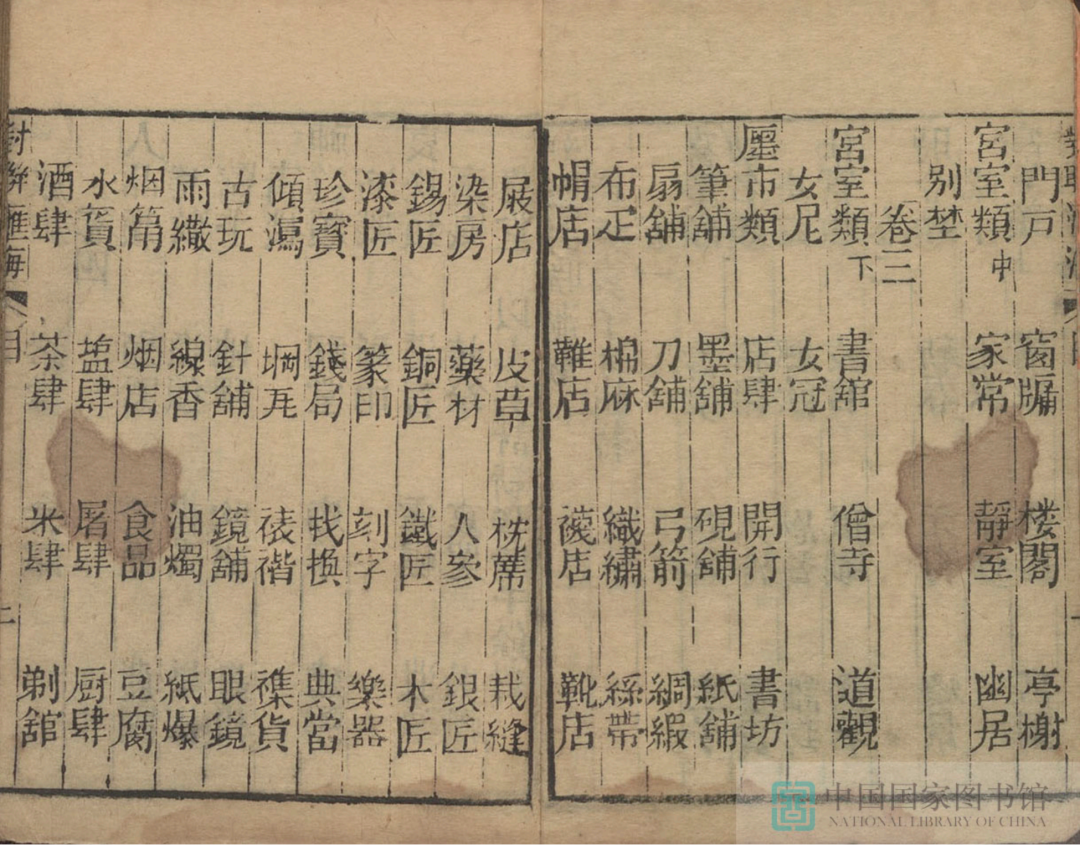 門戸 窗牗 楼閣 亭榭
宮室類中 家常 靜室 幽居
別埜
卷三
宮室類下 書舘 僧寺 道觀
女尼 女冠
厘市類 店肆 開行 書坊
筆舖 墨舖 硯舖 紙舖
扇舖 刀舖 弓箭 綢緞
布疋 棉麻 織繡 絲帶
帽店 鞋店 襪店 靴店
屐店 皮草 枕蓆 裁縫
染房 藥材 人參 銀匠
錫匠 銅匠 鐵匠 木匠
漆匠 篆印 刻字 樂器
珍寶 錢局 找換 典當
傾瀉 堈瓦 裱褙 襍貨
古玩 針舖 鏡舖 眼鏡
雨繖 線香 油燭 紙爆
烟筩 烟店 食品 豆腐
水貨 塩肆 屠肆 厨肆
酒肆 茶肆 米肆 剃舘
對聯滙海 目 上
中国国家图书馆
NATIONAL LIBRARY OF CHINA